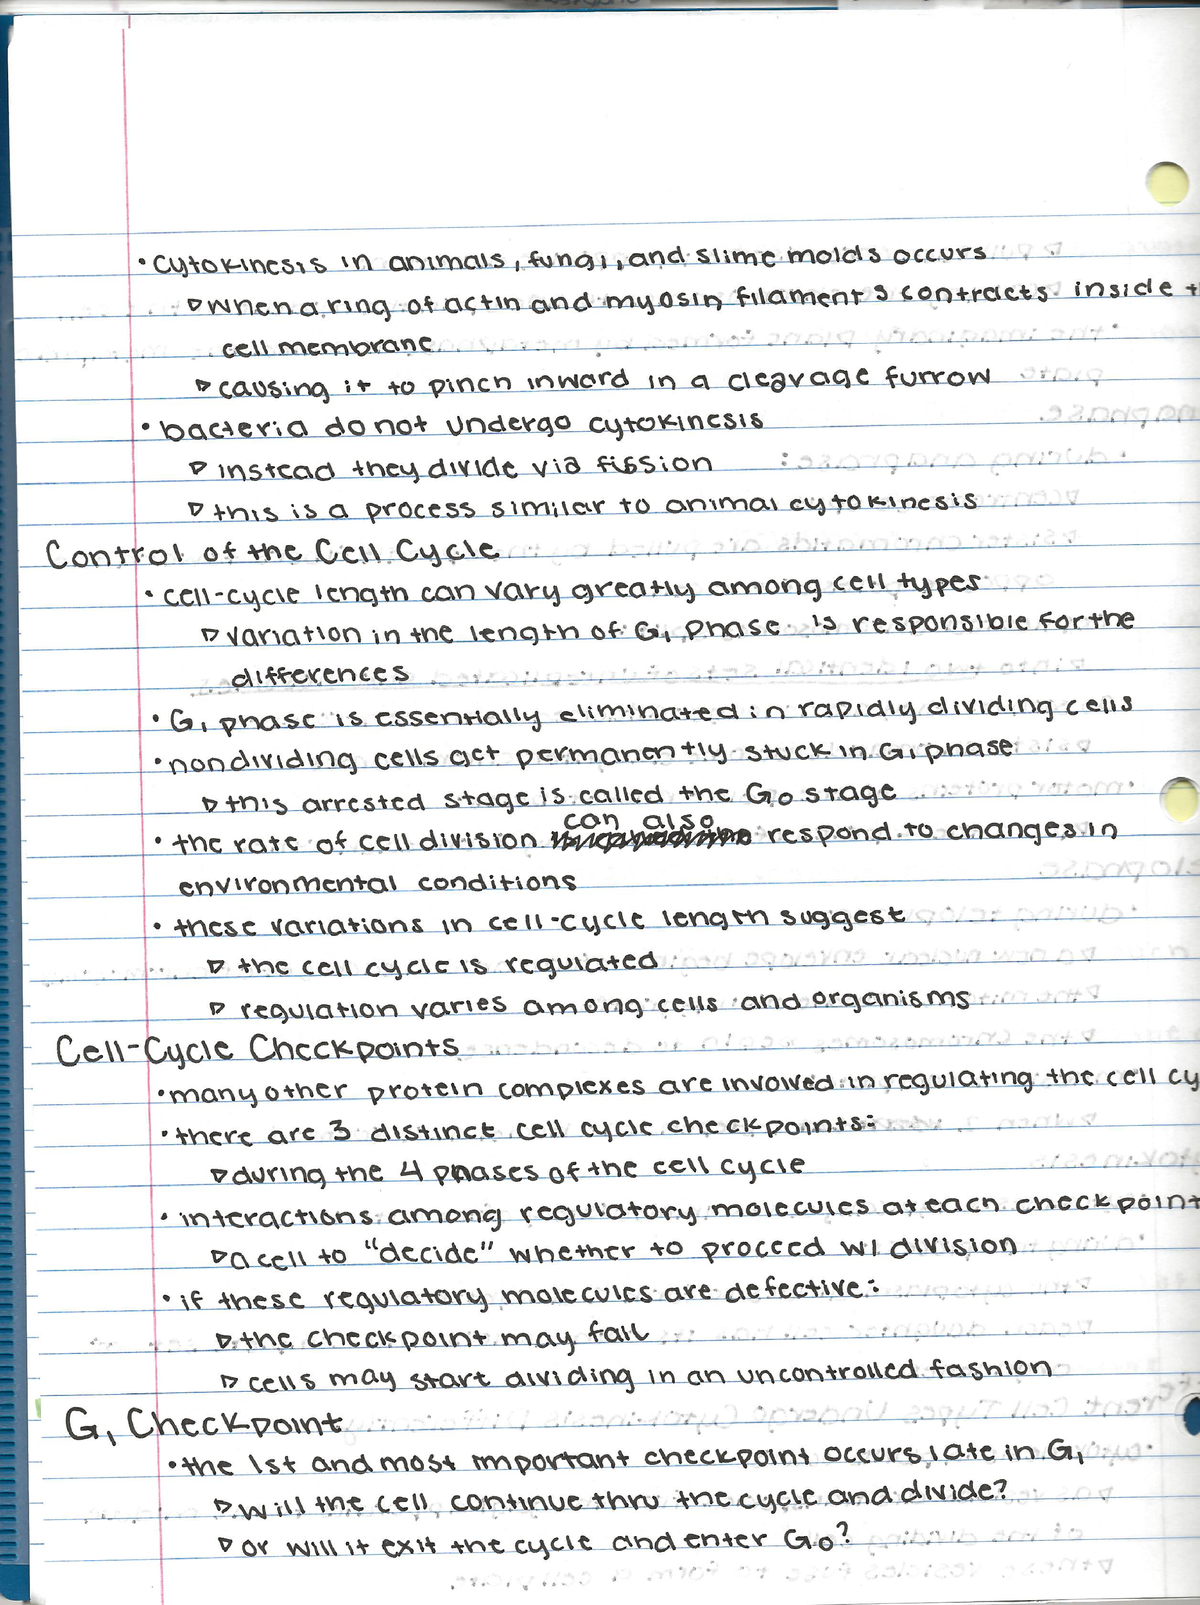 • cytokinesis in animals, fungi, and slime molds occurs
▷ when a ring of actin and myosin filaments contracts inside t
cell membrane
▷ causing it to pinch inward in a cleavage furrow
• bacteria do not undergo cytokinesis
▷ instead they divide via fission
▷ this is a process similar to animal cytokinesis
Control of the Cell Cycle
• cell-cycle length can vary greatly among cell types
▷ variation in the length of G₁ phase is responsible for the
differences
• G₁ phase is essentially eliminated in rapidly dividing cells
• nondividing cells get permanently stuck in G₁ phase
▷ this arrested stage is called the G₀ stage
can also
• the rate of cell division respond to changes in
environmental conditions
• these variations in cell-cycle length suggest
▷ the cell cycle is regulated
▷ regulation varies among cells and organisms
Cell-Cycle Checkpoints
• many other protein complexes are involved in regulating the cell cy
• there are 3 distinct cell cycle checkpoints:
▷ during the 4 phases of the cell cycle
• interactions among regulatory molecules at each checkpoint
▷ a cell to "decide" whether to proceed w/ division
• if these regulatory molecules are defective:
▷ the checkpoint may fail
▷ cells may start dividing in an uncontrolled fashion
G₁ Checkpoint
• the 1st and most important checkpoint occurs late in G₁
▷ will the cell continue thru the cycle and divide?
▷ or will it exit the cycle and enter G₀?